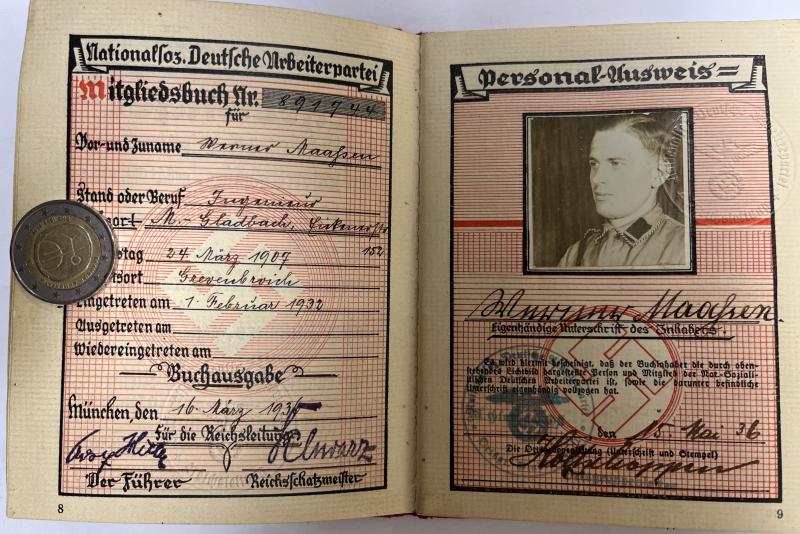 Nationalsoz. Deutsche Arbeiterpartei
Mitgliedsbuch Nr. 891744
für
Vor- und Zuname Werner Maahsen
Stand oder Beruf Ingenieur
M.-Gladbach, Eickenerstr
152
24 März 1907
Grevenbroich
Eingetreten am 1. Februar 1932
Ausgetreten am
Wiedereingetreten am
Buchausgabe
München, den 16. März 1936
für die Reichsleitung
Adolf Hitler Schwarz
Der Führer Reichsschatzmeister
8
Personal-Ausweis
Werner Maahsen
Eigenhändige Unterschrift des Inhabers.
Es wird hiermit bescheinigt, daß der Buchinhaber die durch oben-
stehendes Lichtbild dargestellte Person und Mitglied der Nat.-Soziali-
stischen Deutschen Arbeiterpartei ist, sowie die darunter befindliche
Unterschrift eigenhändig vollzogen hat.
den 15. Mai 36
Die (Unterschrift und Stempel)
9